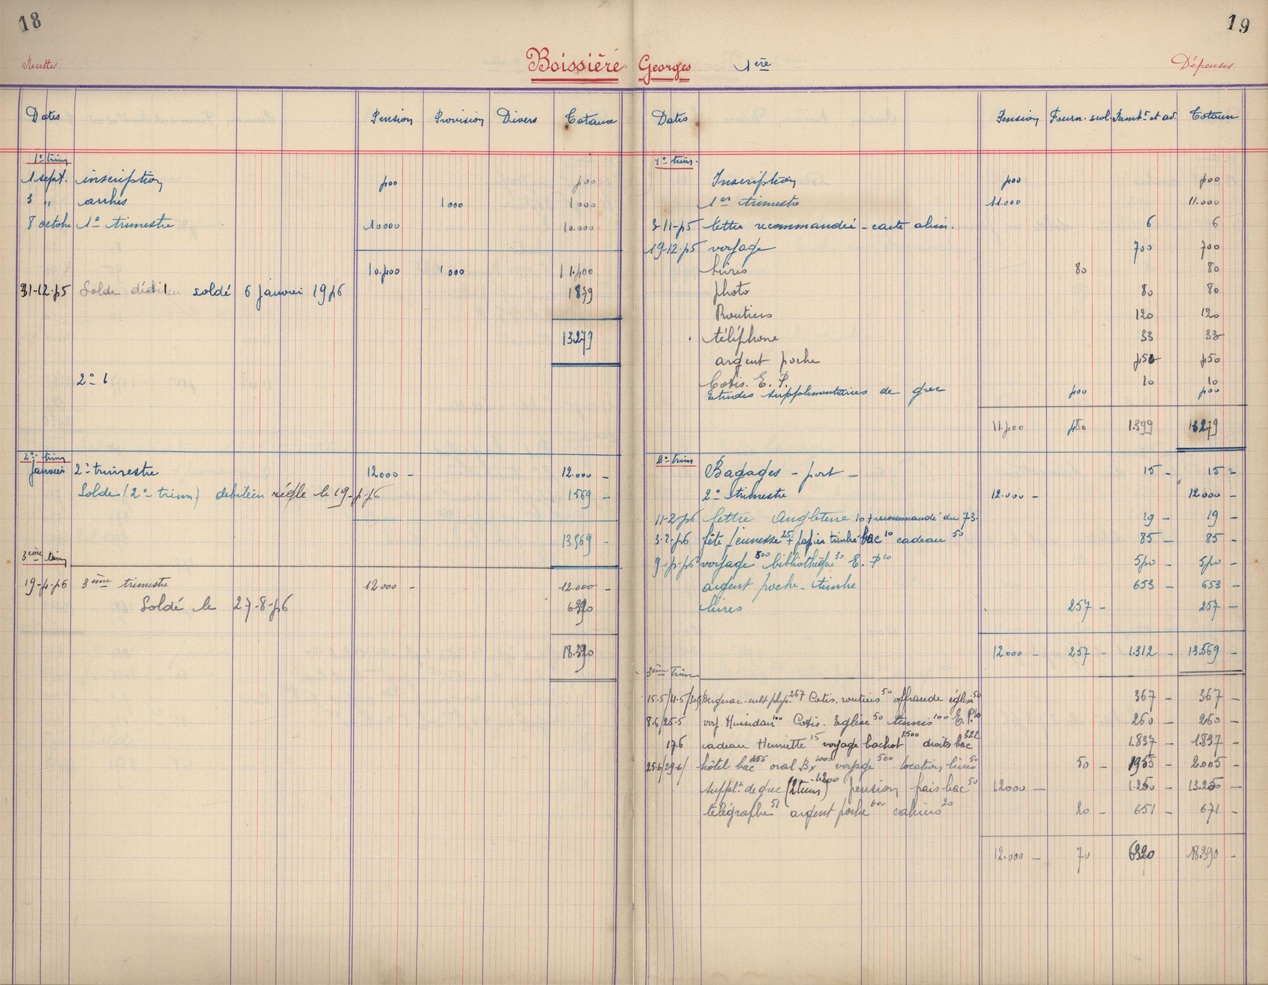 18
19
Recettes
Boissière Georges 1ère
Dépenses
Dates Pension Provision Divers Totaux
1er trim
1 sept. inscription 500 500
3 " arrhes 1000 1000
8 octobre 1er trimestre 10000 10.000
10.500 1000 11.500
31-12-55 Solde soldé 6 janvier 1956
13279
2e t
2e trim
janvier 2e trimestre 12000 - 12.000 -
Solde (2e trim) débiteur réglé le 19-5-56 1569 -
13.569 -
3ème trim
19-5-56 3ème trimestre 12000 - 12.000 -
Soldé le 27-8-56
18.390
Dates Pension Fourn. scol. Totaux
1er trim.
Inscription 500 500
1er trimestre 11.000 11.000
3-11-55 lettre recommandée - carte alim. 6 6
19-12-55 voyage 700 700
livres 80 80
photo 80 80
Routiers 120 120
téléphone 33 33
argent poche 450
Cotis. E. P. 10 10
Etudes supplémentaires de grec 500 500
11.500 1.399 13279
2e trim
Bagages - port - 15 - 15 -
2e trimestre 12.000 - 12.000 -
11-2-56 lettre Angleterre 10 + recommandé du 73. 19 - 19 -
3-2-56 fête jeunesse 25 + papier timbré bac 10 cadeau 50 85 - 85 -
voyage 500 bibliothèque 30 E. P 10
argent poche - timbre 653 - 653 -
livres 257 - 257 -
12000 - 257 - 1.312 - 13.569 -
3ème trim
267 Cotis. routiers 50 offrande église 50 367 - 367 -
Cotis. Eglise 50 tennis 100 E. P. 10 260 - 260 -
17.6 cadeau Henriette 15 voyage bachot 1500 droits bac 322 1.837 - 1.837 -
hôtel bac oral Bx voyage 500 location livres 50 50 - 2.005 -
supplt de grec (2 trim) 1200 pension frais bac 50 12000 - 1.250 13.250 -
télégraphe 51 argent poche 600 cahiers 20 20 - 651 - 671 -
12.000 - 70 - 6320 18.390 -